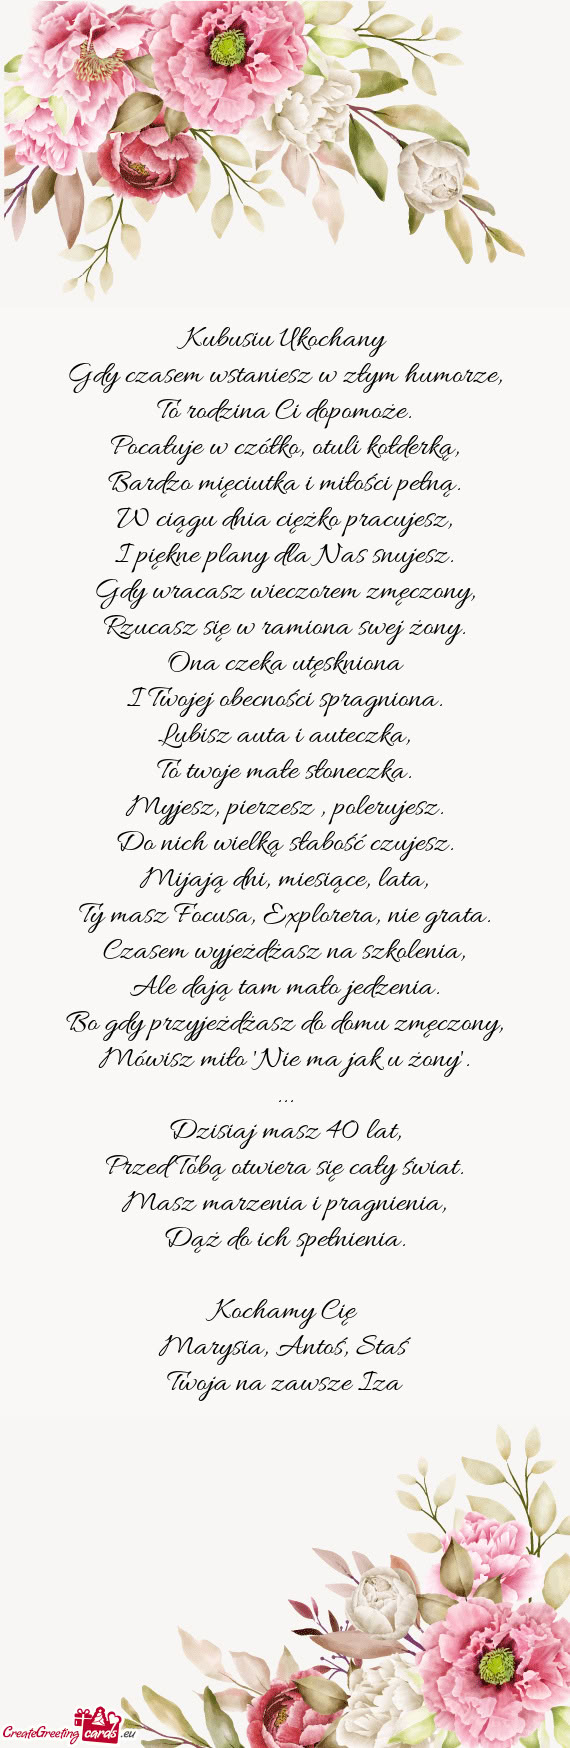 Kubusiu Ukochany
Gdy czasem wstaniesz w złym humorze,
To rodzina Ci dopomoże.
Pocałuje w czółko, otuli kołderką,
Bardzo mięciutka i miłości pełną.
W ciągu dnia ciężko pracujesz,
I piękne plany dla Nas snujesz.
Gdy wracasz wieczorem zmęczony,
Rzucasz się w ramiona swej żony.
Ona czeka utęskniona
I Twojej obecności spragniona.
Lubisz auta i auteczka,
To twoje małe słoneczka.
Myjesz, pierzesz , polerujesz.
Do nich wielką słabość czujesz.
Mijają dni, miesiące, lata,
Ty masz Focusa, Explorera, nie grata.
Czasem wyjeżdżasz na szkolenia,
Ale dają tam mało jedzenia.
Bo gdy przyjeżdżasz do domu zmęczony,
Mówisz miło 'Nie ma jak u żony'.
...
Dzisiaj masz 40 lat,
Przed Tobą otwiera się cały świat.
Masz marzenia i pragnienia,
Dąż do ich spełnienia.
Kochamy Cię
Marysia, Antoś, Staś
Twoja na zawsze Iza
CreateGreeting cards .eu